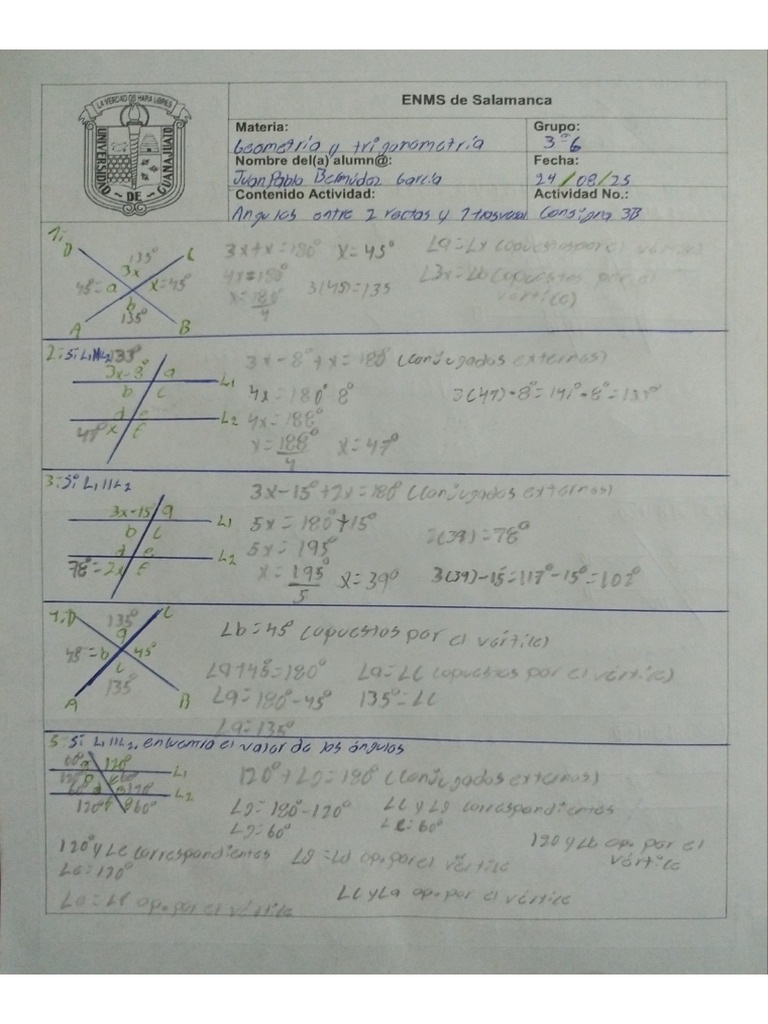 LA VERDAD OS HARA LIBRES
UNIVERSIDAD DE GUANAJUATO
ENMS de Salamanca
Materia:
Geometría y trigonometría
Grupo:
3-6
Nombre del(a) alumn@:
Juan Pablo Bermúdez García
Fecha:
24/08/25
Contenido Actividad:
Angulos entre 2 rectas y
Actividad No.:
Consigna 3B
1:
D 135° C
3x
45°=a x=45°
b
A 135° B
3x+x=180° x=45°
4x=180°
x=180°/4 3(45)=135
La=Lx (opuestos por el vértice)
L3x=Lb (opuestos por el
vértice)
2:Si L1||L2 133°
3x-8° a
b c L1
d e L2
47° x f
3x-8°+x=180° (conjugados externos)
4x=180° 8° 3(47)-8°=141°-8°=133°
4x=188°
x=188°/4 x=47°
3:Si L1||L2
3x-15 a
b c L1
d e L2
78°=2x f
3x-15°+2x=180° (conjugados externos)
5x=180°+15° 2(39)=78°
5x=195°
x=195/5 x=39° 3(39)-15=117°-15°=102°
4.D 135° C
a
45°=b 45°
c
135°
A B
Lb=45° (opuestos por el vértice)
La+45=180° La=Lc (opuestos por el vértice)
La=180°-45° 135°=Lc
La=135°
5:Si L1||L2, encuentra el valor de los ángulos
60° a 120°
120° b c 60° L1
60° d e 120° L2
120° f g 60°
120°+Lg=180° (conjugados externos)
Lg=180°-120° Lc y Lg correspondientes
Lg=60° Lc=60°
120° y Lb op. por el
vértice
120° y Le correspondientes Lg=Ld op. por el vértice
Le=120°
Le=Lf op. por el vértice Lc y La op. por el vértice